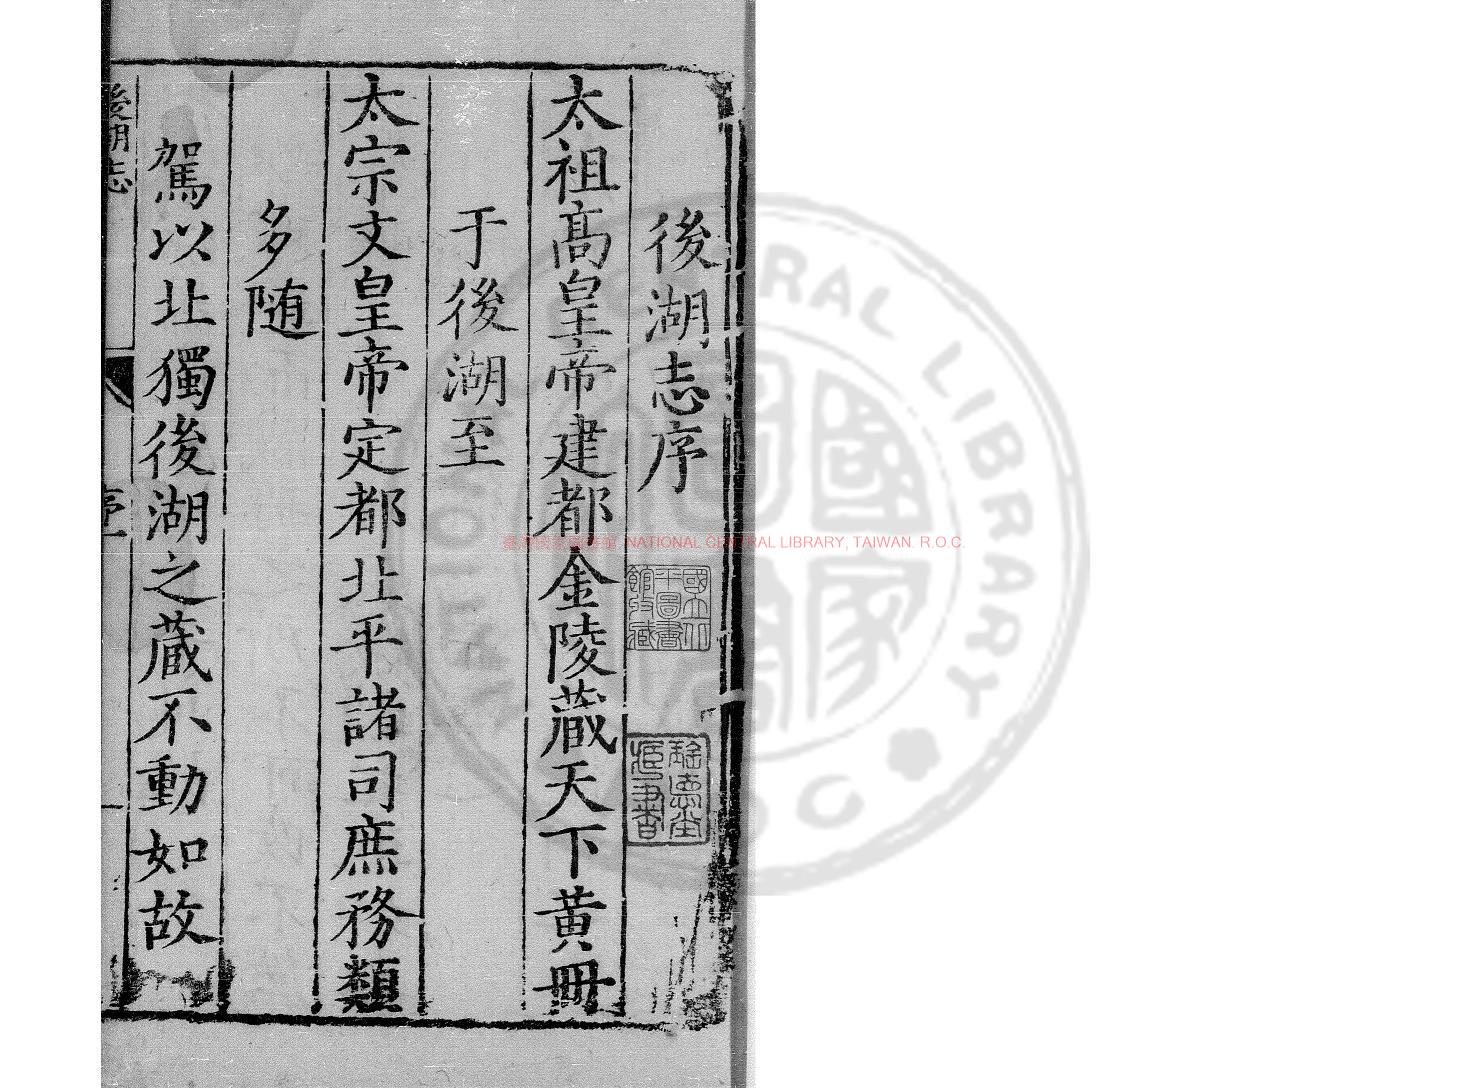 後湖志序
太祖高皇帝建都金陵蔵天下黃冊
于後湖至
太宗文皇帝定都北平諸司庶務類
多随
駕以北獨後湖之蔵不動如故
後湖志
序
國立北
平圖書
館收藏
NATIONAL CENTRAL LIBRARY, TAIWAN. R.O.C.